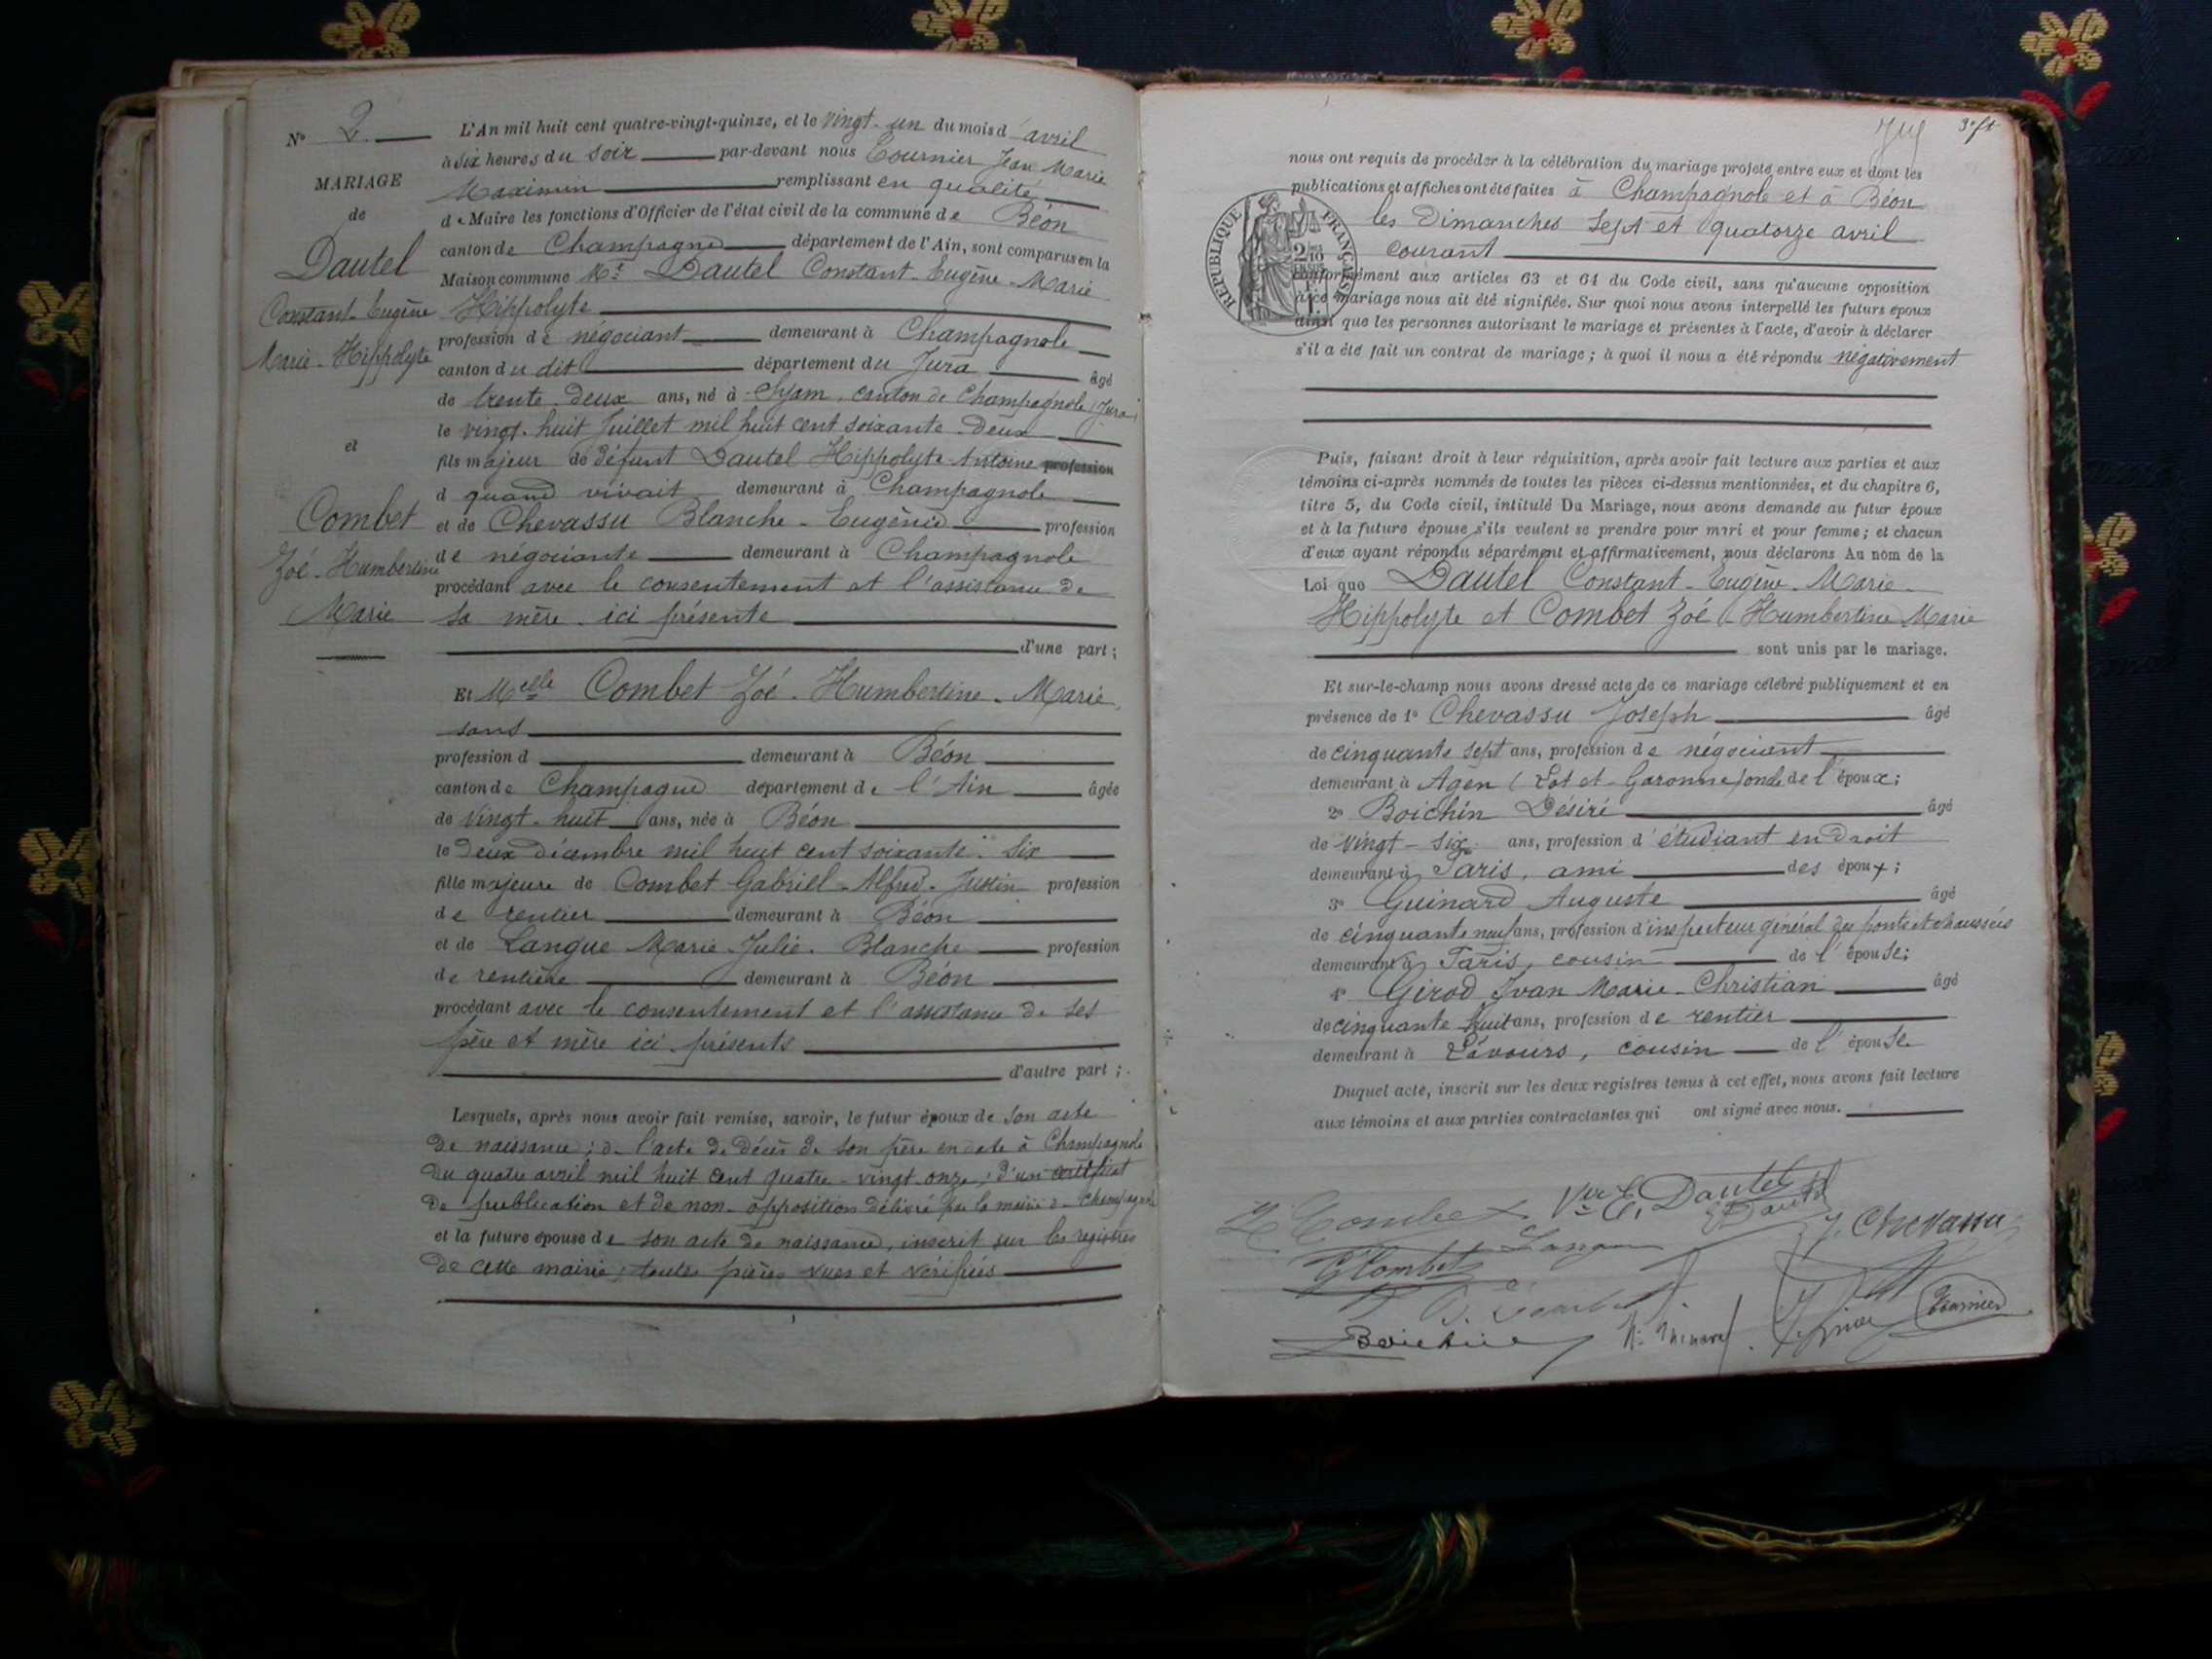 N° 2
MARIAGE
de
Dautel
Constant-Eugène
Marie-Hippolyte
et
Combet
Zoé-Humbertine
Marie
L'An mil huit cent quatre-vingt-quinze, et le vingt-un du mois d'avril
à six heures du soir par-devant nous Tournier Jean Marie
Maximin remplissant en qualité
de Maire les fonctions d'Officier de l'état civil de la commune de Béon
canton de Champagne département de l'Ain, sont comparus en la
Maison commune Mr Dautel Constant-Eugène-Marie
Hippolyte
profession de négociant demeurant à Champagnole
canton du dit département du Jura âgé
de trente-deux ans, né à Syam, canton de Champagnole (Jura)
le vingt-huit Juillet mil huit cent soixante-deux
fils majeur de défunt Dautel Hippolyte-Antoine profession
d quand vivait demeurant à Champagnole
et de Chevassu Blanche-Eugénie profession
de négociante demeurant à Champagnole
procédant avec le consentement et l'assistance de
sa mère ici présente
d'une part;
Et Melle Combet Zoé-Humbertine-Marie,
sans
profession d demeurant à Béon
canton de Champagne département de l'Ain âgée
de vingt-huit ans, née à Béon
le deux décembre mil huit cent soixante-six
fille majeure de Combet Gabriel-Alfred-Justin profession
de rentier demeurant à Béon
et de Langue Marie-Julie-Blanche profession
de rentière demeurant à Béon
procédant avec le consentement et l'assistance de ses
père et mère ici présents
d'autre part;
Lesquels, après nous avoir fait remise, savoir, le futur époux de son acte
de naissance; de l'acte de décès de son père en date à Champagnole
du quatre avril mil huit cent quatre-vingt-onze; d'un certificat
de publication et de non-opposition délivré par la mairie de Champagnole
et la future épouse de son acte de naissance, inscrit sur les registres
de cette mairie; toutes pièces vues et vérifiées
3e ft
nous ont requis de procéder à la célébration du mariage projeté entre eux et dont les
publications et affiches ont été faites à Champagnole et à Béon
les Dimanches sept et quatorze avril
courant
RÉPUBLIQUE FRANÇAISE
conformément aux articles 63 et 64 du Code civil, sans qu'aucune opposition
à ce mariage nous ait été signifiée. Sur quoi nous avons interpellé les futurs époux
ainsi que les personnes autorisant le mariage et présentes à l'acte, d'avoir à déclarer
s'il a été fait un contrat de mariage; à quoi il nous a été répondu négativement
Puis, faisant droit à leur réquisition, après avoir fait lecture aux parties et aux
témoins ci-après nommés de toutes les pièces ci-dessus mentionnées, et du chapitre 6,
titre 5, du Code civil, intitulé Du Mariage, nous avons demandé au futur époux
et à la future épouse s'ils veulent se prendre pour mari et pour femme; et chacun
d'eux ayant répondu séparément et affirmativement, nous déclarons Au nom de la
Loi que Dautel Constant-Eugène-Marie-
Hippolyte et Combet Zoé-Humbertine-Marie
sont unis par le mariage.
Et sur-le-champ nous avons dressé acte de ce mariage célébré publiquement et en
présence de 1° Chevassu Joseph âgé
de cinquante sept ans, profession de négociant
demeurant à Agen (Lot et Garonne) oncle de l'époux;
2° Boichin Désiré âgé
de vingt-six ans, profession d'étudiant en droit
demeurant à Paris, ami des époux;
3° Guinard Auguste âgé
de cinquante neuf ans, profession d'inspecteur général des ponts et chaussées
demeurant à Paris, cousin de l'épouse;
4° Girod Ivan Marie-Christian âgé
de cinquante huit ans, profession de rentier
demeurant à Lavours, cousin de l'épouse
Duquel acte, inscrit sur les deux registres tenus à cet effet, nous avons fait lecture
aux témoins et aux parties contractantes qui ont signé avec nous.
Z. Combet Vve E. Dautel
Dautel
J. Chevassu
G Combet
Boichin
Tournier